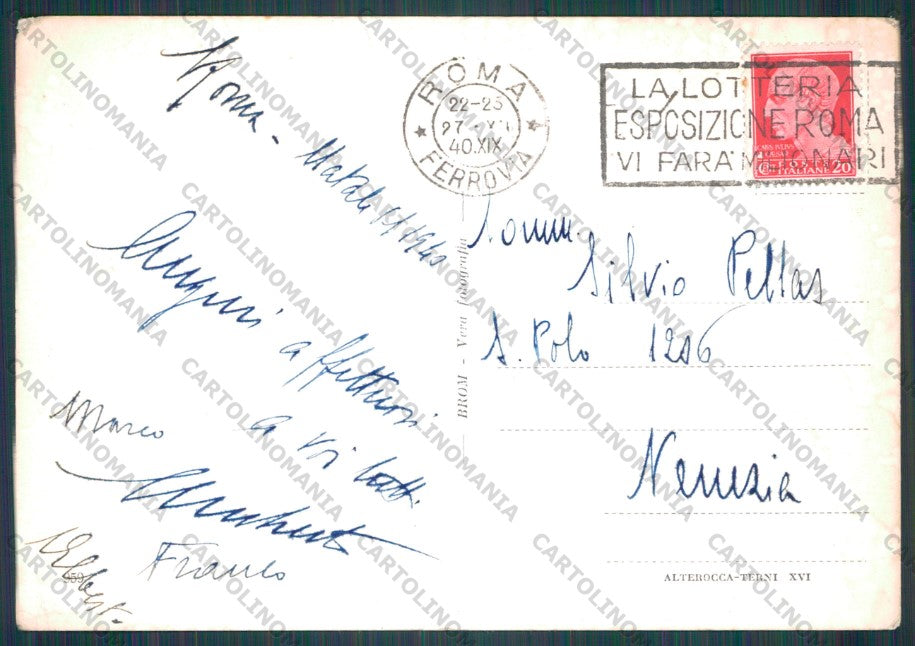 Roma - Natale 1940
Auguri
affettuosi
a Voi tutti
Marco
Umberto
Franco
959
ROMA
22-23
27 . XII
40.XIX
FERROVIA
LA LOTTERIA
ESPOSIZIONE ROMA
VI FARA' MILIONARI
POSTE ITALIANE 20
Comm.
Silvio Pellas
S. Polo 1206
Venezia
BROM - Vera fotografia
ALTEROCCA-TERNI XVI
CARTOLINOMANIA